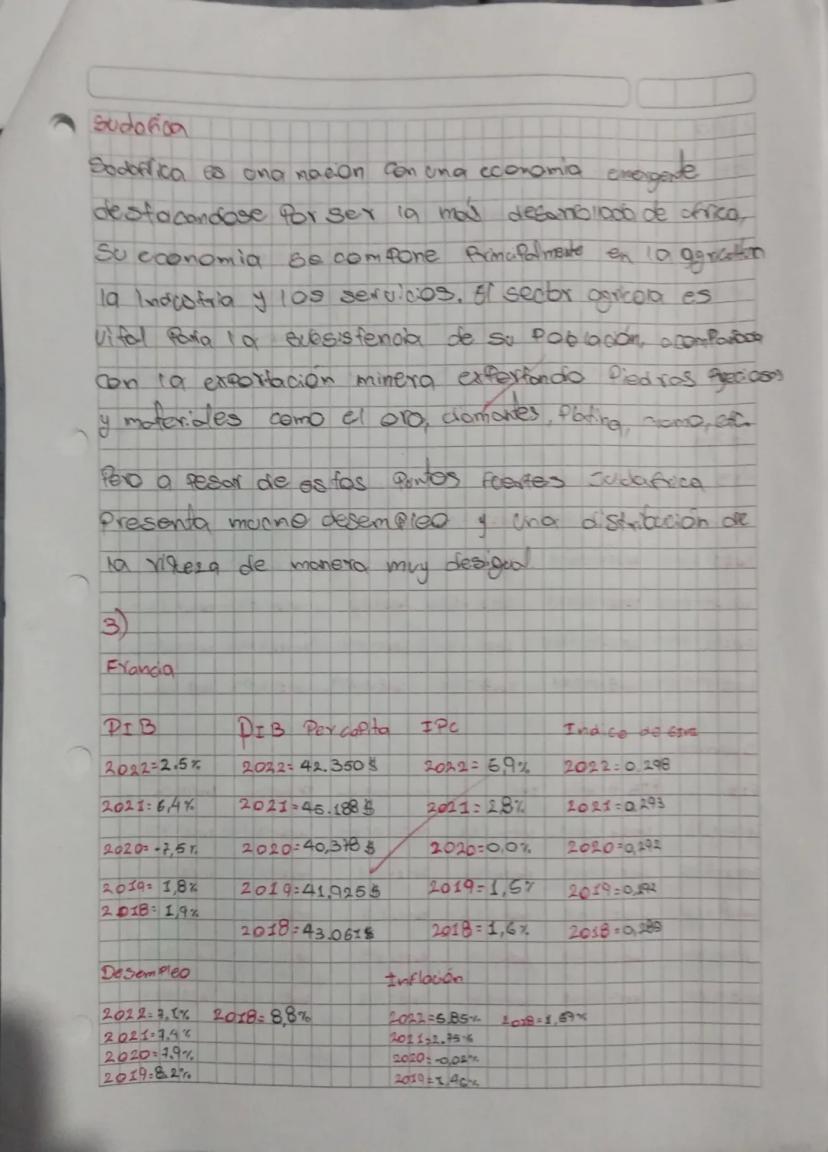 Sudafrica
Sudafrica es una nacion con una economia emergente
destacandose por ser la mas desarrollado de africa,
su economia se compone principalmente en la agricultura
la industria y los servicios. El sector agricola es
vital para la subsistencia de su poblacion, acompañada
con la exportación minera exportando piedras preciosas
y materiales como el oro, diamantes, platino, etc.
Pero a pesar de estos puntos fuertes Sudafrica
presenta mucho desempleo y una distribución de
la riqeza de manera muy desigual
3)
Francia
PIB PIB Per capita IPC Indice de
2022=2.5% 2022=42.350$ 2022=5,9% 2022=0.298
2021=6,4% 2021=45.188$ 2021=2.8% 2021=0,293
2020=-7,5% 2020=40,378$ 2020=0,0% 2020=0,292
2019=1,8% 2019=41,925$ 2019=1,5% 2019=0,292
2018=1,9%
2018=43.061$ 2018=1,6% 2018=0,289
Desempleo Inflación
2022=7,1% 2018=8,8% 2022=5,85% 2018=1,69%
2021=7,4% 2021=2.75%
2020=7,9% 2020=-0,02%
2019=8.2% 2019=1,46%